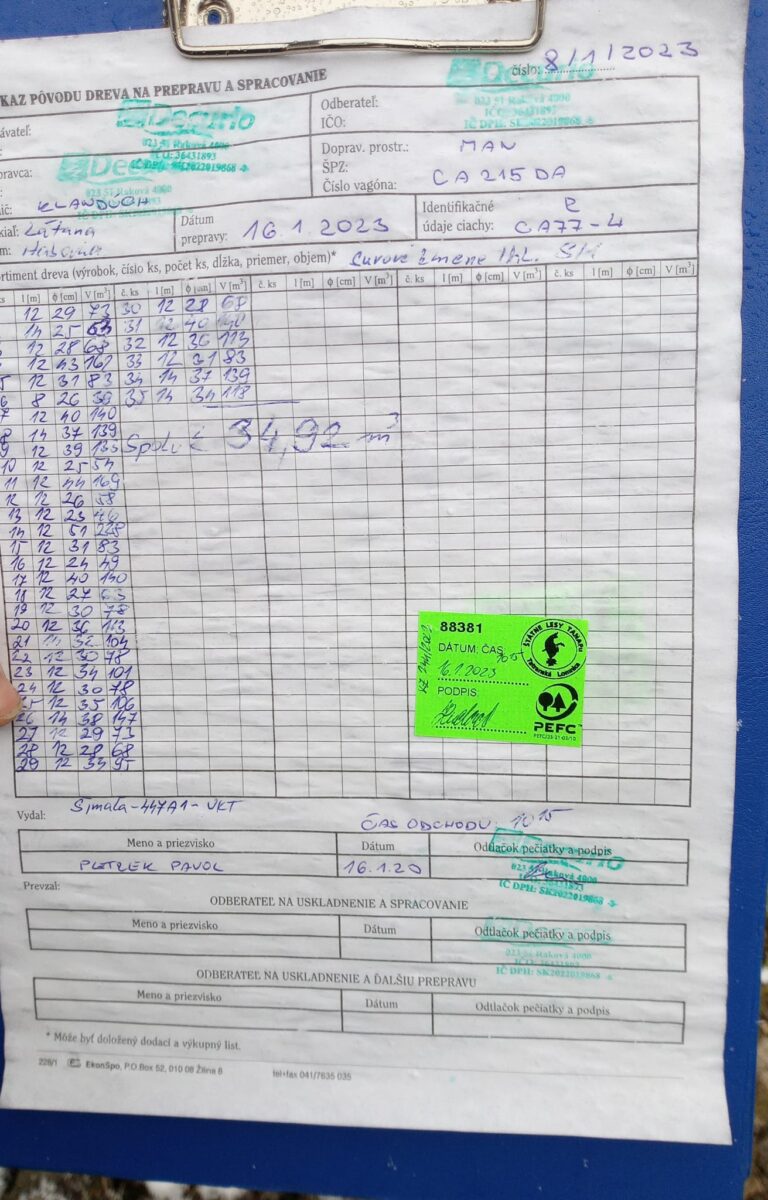 číslo: 8/1/2023
KAZ PÔVODU DREVA NA PREPRAVU A SPRACOVANIE
ávateľ:
Decurlo
023 51 Raková 4000
IČO: 36431893
IČ DPH: SK2022019868
Odberateľ:
IČO:
023 51 Raková 4000
IČO: 36431893
IČ DPH: SK2022019868
pravca:
023 51 Raková 4000
Doprav. prostr.: MAN
ŠPZ:
Číslo vagóna: CA 215 DA
KLANDUCH
Dátum
prepravy: 16.1.2023
Identifikačné
údaje ciachy: CA77-4
ortiment dreva (výrobok, číslo ks, počet ks, dĺžka, priemer, objem)* Surové kmene
ks l [m] ϕ [cm] V [m³] č. ks l [m] ϕ [cm] V [m³] č. ks l [m] ϕ [cm] V [m³] č. ks l [m] ϕ [cm] V [m³] č. ks l [m] ϕ [cm] V [m³]
12 29 73 30 12 28 68
14 25 31 40
12 28 68 32 12 36 113
12 43 162 33 12 31 83
5 12 31 83 34 14 37 139
6 8 26 35 14 34 118
7 12 40 140
8 14 37 139
9 12 39 133 Spolu: 34,92 m³
10 12 25 54
11 12 44 169
12 12 26 58
13 12 23 46
14 12 51 228
15 12 31 83
16 12 24 49
17 12 40 140
18 12 27 63
19 12 30 78
20 12 36 113
21 104
22 12 30 78
23 12 34 101
24 12 30 78
25 12 35 106
26 14 38 147
27 12 29 73
28 12 28 68
29 12 34 95
88381
DÁTUM, ČAS
16.1.2023
PODPIS:
ŠTÁTNE LESY TANAPU
Tatranská Lomnica
PEFC
Vydal: Šmala-447A1-VKT
ČAS ODCHODU: 10 15
Meno a priezvisko Dátum Odtlačok pečiatky a podpis
PETREK PAVOL 16.1.20
023 51 Raková 4000
IČ DPH: SK2022019868
Prevzal:
ODBERATEĽ NA USKLADNENIE A SPRACOVANIE
Meno a priezvisko Dátum Odtlačok pečiatky a podpis
023 51 Raková 4000
IČO: 36431893
IČ DPH: SK2022019868
ODBERATEĽ NA USKLADNENIE A ĎALŠIU PREPRAVU
Meno a priezvisko Dátum Odtlačok pečiatky a podpis
* Môže byť doložený dodací a výkupný list.
228/1 EkonSpo, P.O.Box 52, 010 08 Žilina 8 tel+fax 041/7635 035